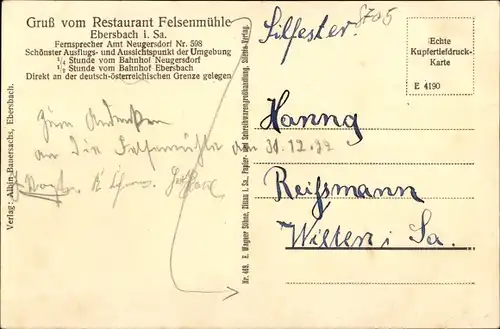 Gruß vom Restaurant Felsenmühle
Ebersbach i. Sa.
Fernsprecher Amt Neugersdorf Nr. 598
Schönster Ausflugs- und Aussichtspunkt der Umgebung
1/4 Stunde vom Bahnhof Neugersdorf
1/2 Stunde vom Bahnhof Ebersbach
Direkt an der deutsch-österreichischen Grenze gelegen
Zum Andenken
an die Felsenmühle den 31.12.32
Verlag: Albin Bauersachs, Ebersbach.
Nr. 469. E. Wagner Söhne, Zittau i. Sa., Papier- und Schreibwarengroßhandlung, Bilder-Verlag.
Silfester
5705
Echte
Kupfertiefdruck-
Karte
E 4190
Hanng
Reißmann
Wilten i Sa.